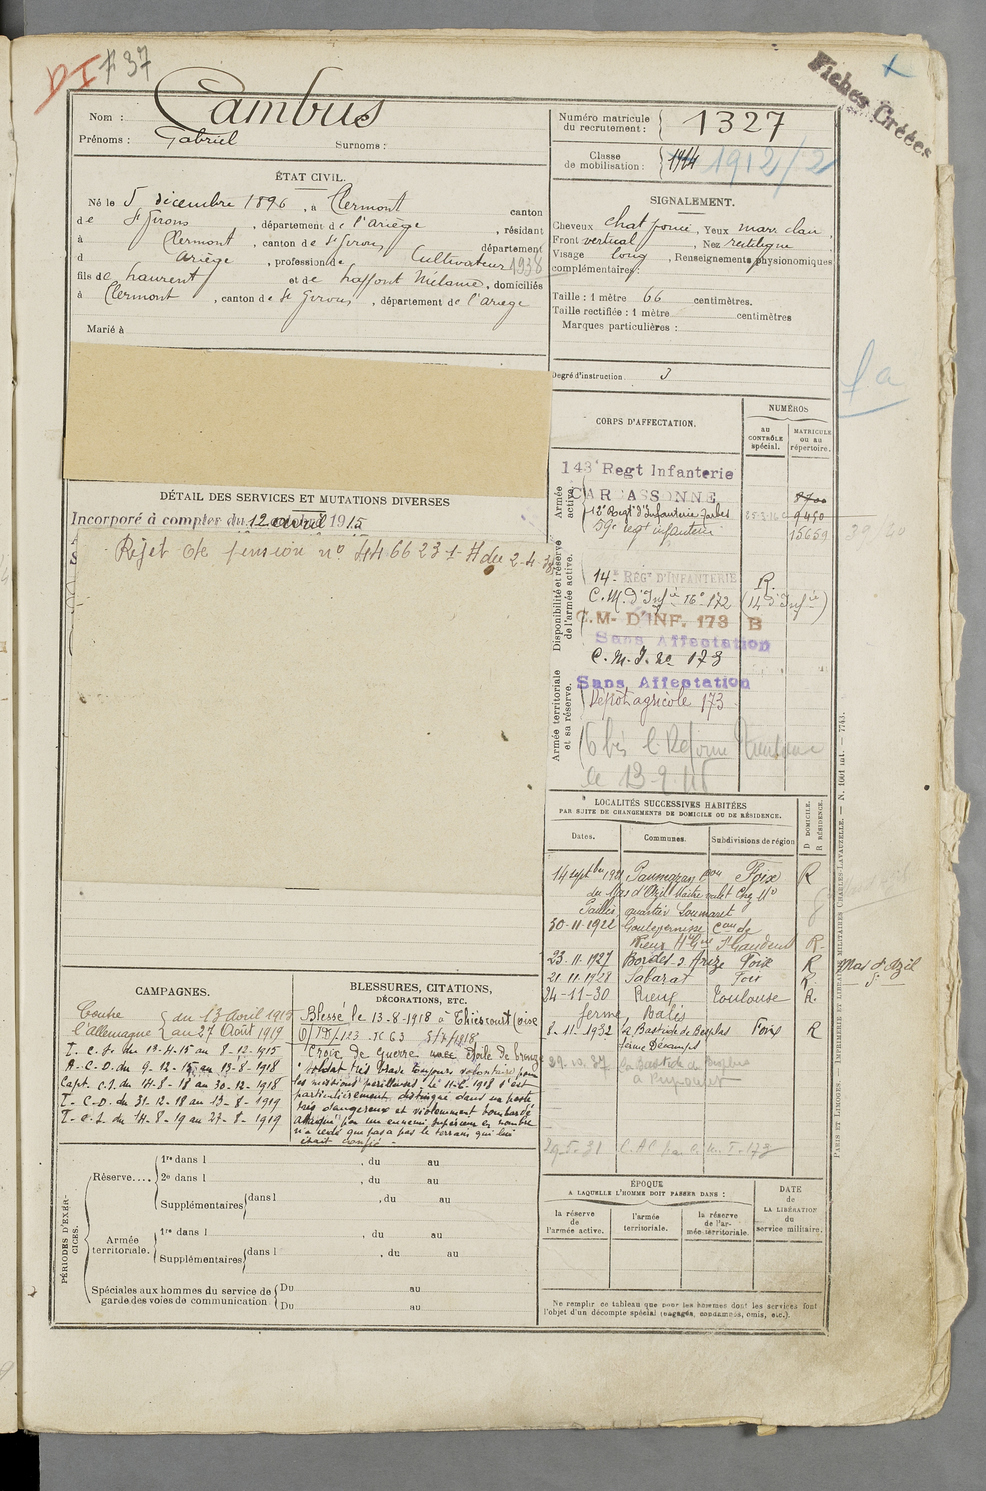 DI F 37
Fiches Créées
Nom : Cambus
Prénoms : Gabriel Surnoms :
Numéro matricule du recrutement : 1327
Classe de mobilisation : 1914 1912/2
ÉTAT CIVIL.
Né le 5 décembre 1896, à Clermont canton
de St Girons, département de l'Ariège, résidant
à Clermont, canton de St Girons département
d Ariège, profession de Cultivateur 1938
fils de Laurent et de Laffont Mélanie, domiciliés
à Clermont, canton de St Girons, département de l'Ariège
Marié à
SIGNALEMENT.
Cheveux chat foncé, Yeux marr. clair,
Front vertical, Nez rectiligne
Visage long, Renseignements physionomiques
complémentaires :
Taille : 1 mètre 66 centimètres.
Taille rectifiée : 1 mètre centimètres
Marques particulières :
Degré d'instruction 3
DÉTAIL DES SERVICES ET MUTATIONS DIVERSES
Incorporé à compter du 12 avril 1915
Rejet de pension no 44 66 23 1-H du 2-4-38
CORPS D'AFFECTATION.
NUMÉROS
au CONTRÔLE spécial.
MATRICULE ou au répertoire.
Armée active.
143e Regt Infanterie
CARCASSONNE
12e Regt d'Infanterie Tarbes 9450
59e regt infanterie 15659
Disponibilité et réserve de l'armée active.
14e REGt D'INFANTERIE R
C. M. d'Infie 16e 172 (14 d'Infie)
C.M. D'INF. 173 B
Sans Affectation
C. M. I. 173
Armée territoriale et sa réserve.
Sans Affectation
Dépôt agricole 173
LOCALITÉS SUCCESSIVES HABITÉES
PAR SUITE DE CHANGEMENTS DE DOMICILE OU DE RÉSIDENCE.
Dates. Communes. Subdivisions de région
D DOMICILE. R RÉSIDENCE.
14 septbre 1921 con Foix R
du Mas d'Azil Maître valet chez Mr
quartier
30-11-1922 Goutevernisse con de
Rieux Hte Gne St Gaudens R.
23-11-1927 Bordes s Arize Foix R
21-11-1928 Sabarat Foix R.
24-11-30 Rieux Toulouse R.
ferme Balès
8-11-1932 la Bastide de Besplas Foix R
ferme
29-10-37 la Bastide de Besplas
Mas d'Azil
CAMPAGNES.
Contre l'Allemagne du 13 Avril 1915 au 27 Août 1919
T. C. S. du 13-4-15 au 8-12-1915
A. C. D. du 9-12-15 au 13-8-1918
Capt. C.S. du 14-8-18 au 30-12-1918
T. C. D. du 31-12-18 au 13-8-1919
T. C. S. du 14-8-19 au 27-8-1919
BLESSURES, CITATIONS,
DÉCORATIONS, ETC.
Blessé le 13-8-1918 à Thiescourt (Oise
Croix de Guerre avec étoile de bronze
Soldat très brave toujours volontaire pour
les missions périlleuses. le 11-6-1918 s'est
particulièrement distingué dans un poste
très dangereux et violemment bombardé
Attaqué par un ennemi supérieur en nombre
n'a cédé pas à pas le terrain qui lui
était confié -
PÉRIODES D'EXERCICES.
Réserve....
1re dans l , du au
2e dans l , du au
Supplémentaires dans l , du au
Armée territoriale.
1re dans l , du au
Supplémentaires dans l , du au
Spéciales aux hommes du service de garde des voies de communication
Du au
Du au
ÉPOQUE
A LAQUELLE L'HOMME DOIT PASSER DANS :
la réserve de l'armée active.
l'armée territoriale.
la réserve de l'armée territoriale.
DATE de LA LIBÉRATION du service militaire.
Ne remplir ce tableau que pour les hommes dont les services font
l'objet d'un décompte spécial (engagés, condamnés, omis, etc.).
PARIS ET LIMOGES. — IMPRIMERIE ET LIBRAIRIE MILITAIRES CHARLES-LAVAUZELLE. — N. 1001 int. — 7743.